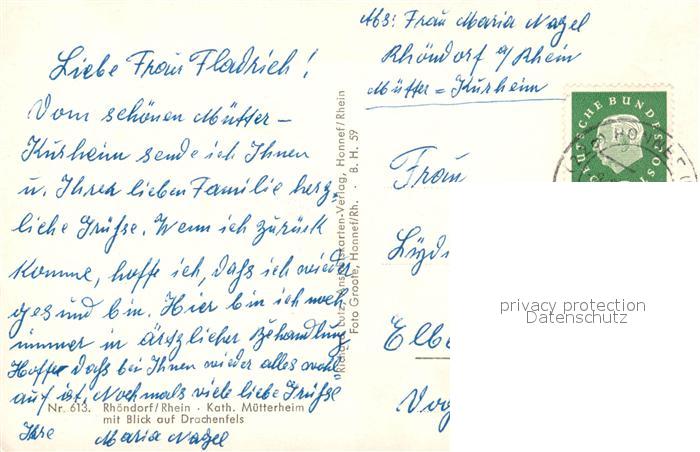 Abs: Frau Maria Nagel
Rhöndorf a/Rhein
Mütter = Kurheim
Liebe Frau Fladrich!
Vom schönen Mütter –
Kurheim sende ich Ihnen
u. Ihrer lieben Familie herz
liche Grüße. Wenn ich zurück
komme, hoffe ich, daß ich wieder
gesund bin. Hier bin ich noch
immer in ärztlicher Behandlung
Hoffe daß bei Ihnen wieder alles wohl
auf ist, Nochmals viele liebe Grüße
Ihre Maria Nagel
Nr. 613. Rhöndorf/Rhein · Kath. Mütterheim
mit Blick auf Drachenfels
Ansichtskarten-Verlag, Honnef/Rhein
Foto Groote, Honnef/Rh. · B. H. 59
Frau
Lyd
Elbe
Vog
HONNEF
privacy protection
Datenschutz